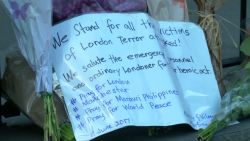 We Stand for all the victims
of London Terror attacked!
We salute the emergency personnel
and ordinary Londoner for heroic act.
# Pray for London
# Manchester
# Pray for Marawi Philippines
# Pray for World Peace
June 2017